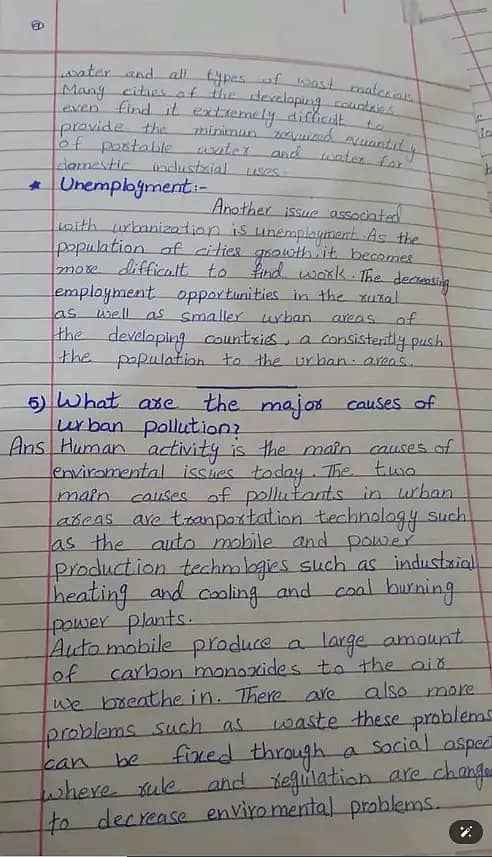 water and all types of wast materials
Many cities of the developing countries
even find it extremely difficult to
provide the minimun required quantity
of portable water and water for
domestic industrial uses.
* Unemployment:-
Another issue associated
with urbanization is unemployment. As the
population of cities growth, it becomes
more difficult to find work. The decreasing
employment opportunities in the rural
as well as smaller urban areas of
the developing countries, a consistently push
the population to the urban areas.
5) What are the major causes of
urban pollution?
Ans Human activity is the main causes of
enviromental issues today. The two
main causes of pollutants in urban
areas are tranportation technology such
as the auto mobile and power
production technologies such as industrial
heating and cooling and coal burning
power plants.
Automobile produce a large amount
of carbon monoxides to the air
we breathe in. There are also more
problems such as waste these problems
can be fixed through a social aspect
where rule and regulation are change
to decrease enviromental problems.